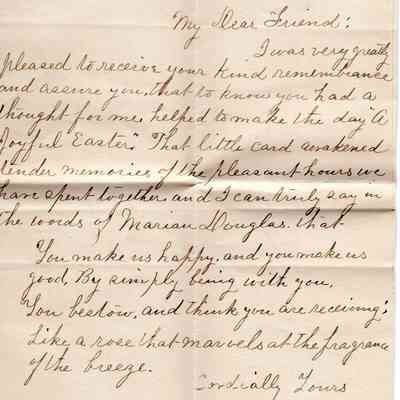 My Dear Friend:
I was very greatly
pleased to receive your kind remembrance
and assure you, that to know you had a
thought for me, helped to make the day "A
Joyful Easter". That little card awakened
tender memories of the pleasant hours we
have spent together and I can truly say in
the words of Marian Douglas. that
You make us happy, and you make us
good, By simply being with you,
You bestow, and think you are receiving;
Like a rose that marvels at the fragrance
of the breeze.
Cordially Yours